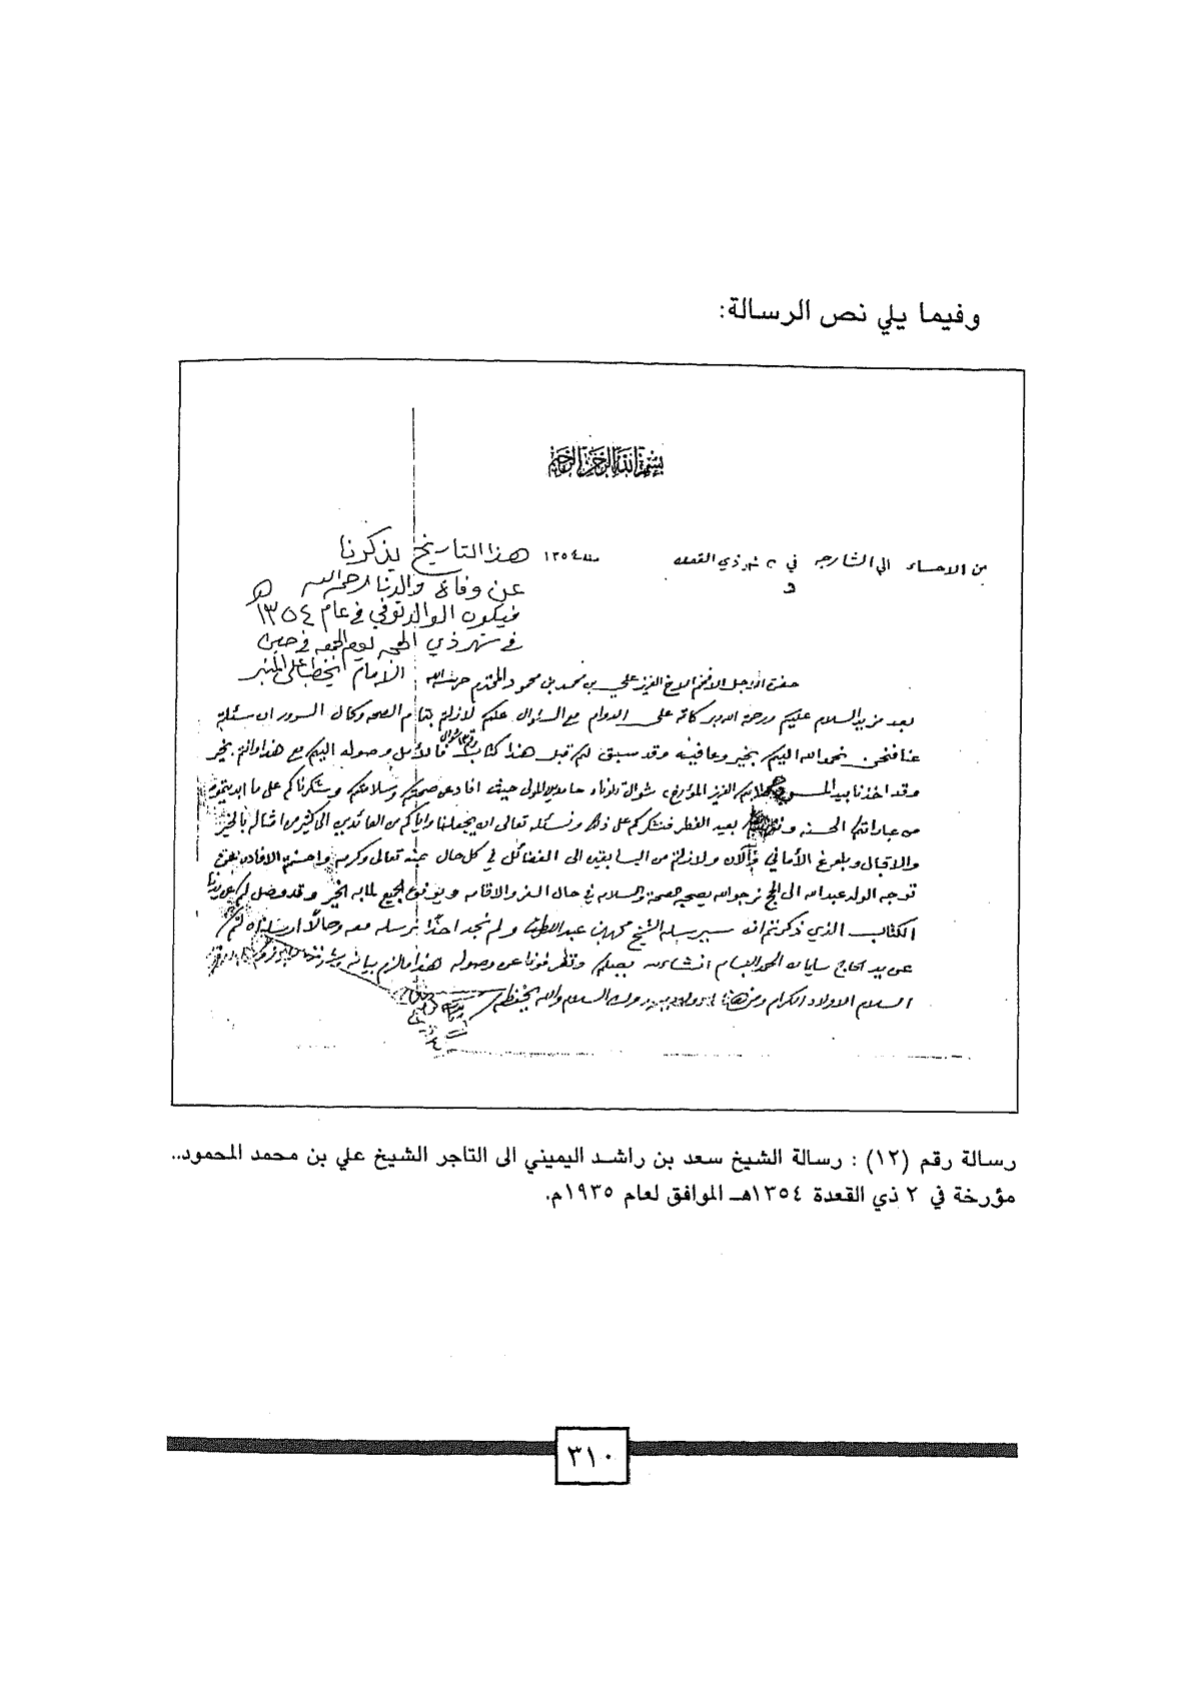 وفيما يلي نص الرسالة:
بسم الله الرحمن الرحيم
من الاحساء الى الشارجه في ٢ شهر ذي القعده سنة ١٣٥٤
هذا التاريخ يذكرنا
عن وفاة والدنا رحمه الله
فيكون الوالد توفي في عام ١٣٥٤ هـ
في شهر ذي الحجه يوم الجمعه في حين
الامام يخطب على المنبر
حضرة الاجل الافخم الاخ العزيز علي بن محمد بن محمود المحترم حرسه الله
بعد مزيد السلام عليكم ورحمة الله وبركاته على الدوام مع السئوال عنكم لازلتم بتمام الصحه وكمال السرور ان سئلتم
عنا فنحن نحمد الله اليكم بخير وعافيه وقد سبق لكم قبل هذا كتاب فالامل وصوله اليكم مع هذا وانتم بخير
وقد اخذنا بيد العزيز المؤرخ شوال تلوناه حامدين المولى حيث افاد عن صحتكم وسلامتكم ونشكركم على ما ابديتموه
من عباراتكم الحسنه بعيد الفطر فنشكركم على ذلك ونسئله تعالى ان يجعلنا واياكم من العائدين الى كثير من امثاله بالخير
والاقبال وبلوغ الأماني ولازلتم من السابقين الى الفضائل في كل حال بمنه تعالى وكرمه واحسنتم الافاده عن
توجه الولد عبدالله الى الحج نرجو الله يصحبه الصحة والسلامه في حال السفر والاقامه ويوفق الجميع لما به الخير وقد وصل لكم
الكتاب الذي ذكرتم انه سيرسله الشيخ محمد بن عبداللطيف ولم نجد احدًا نرسله معه وحالًا ارسلناه لكم
عن يد الحاج سليمان الحمد البسام انشاء الله يصلكم وتعرفونا عن وصوله هذا مالزم بيانه
السلام الاولاد الكرام ومن هنا الاولاد يبدون السلام والله يحفظكم
رسالة رقم (١٢) : رسالة الشيخ سعد بن راشد اليميني الى التاجر الشيخ علي بن محمد المحمود..
مؤرخة في ٢ ذي القعدة ١٣٥٤هـ الموافق لعام ١٩٣٥م.
٣١٠